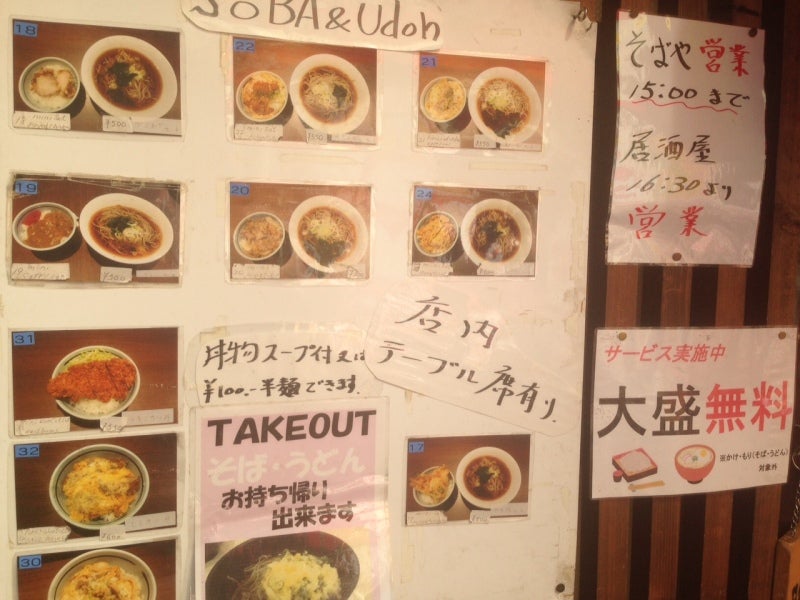 SOBA & Udon
18
¥500
22
21
19
¥500
20
24
31
32
30
17
丼物スープ付又は
¥100.-半麺できます.
店内
テーブル席有り
TAKEOUT
そば・うどん
お持ち帰り
出来ます
そばや営業
15:00まで
居酒屋
16:30より
営業
サービス実施中
大盛無料
※かけ・もり(そば・うどん)
対象外